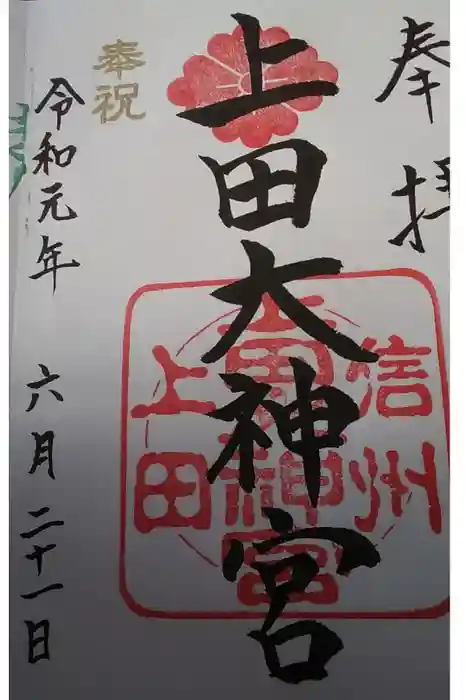 奉拝
上田大神宮
信州
上田
大神宮
奉祝
令和元年 六月二十一日